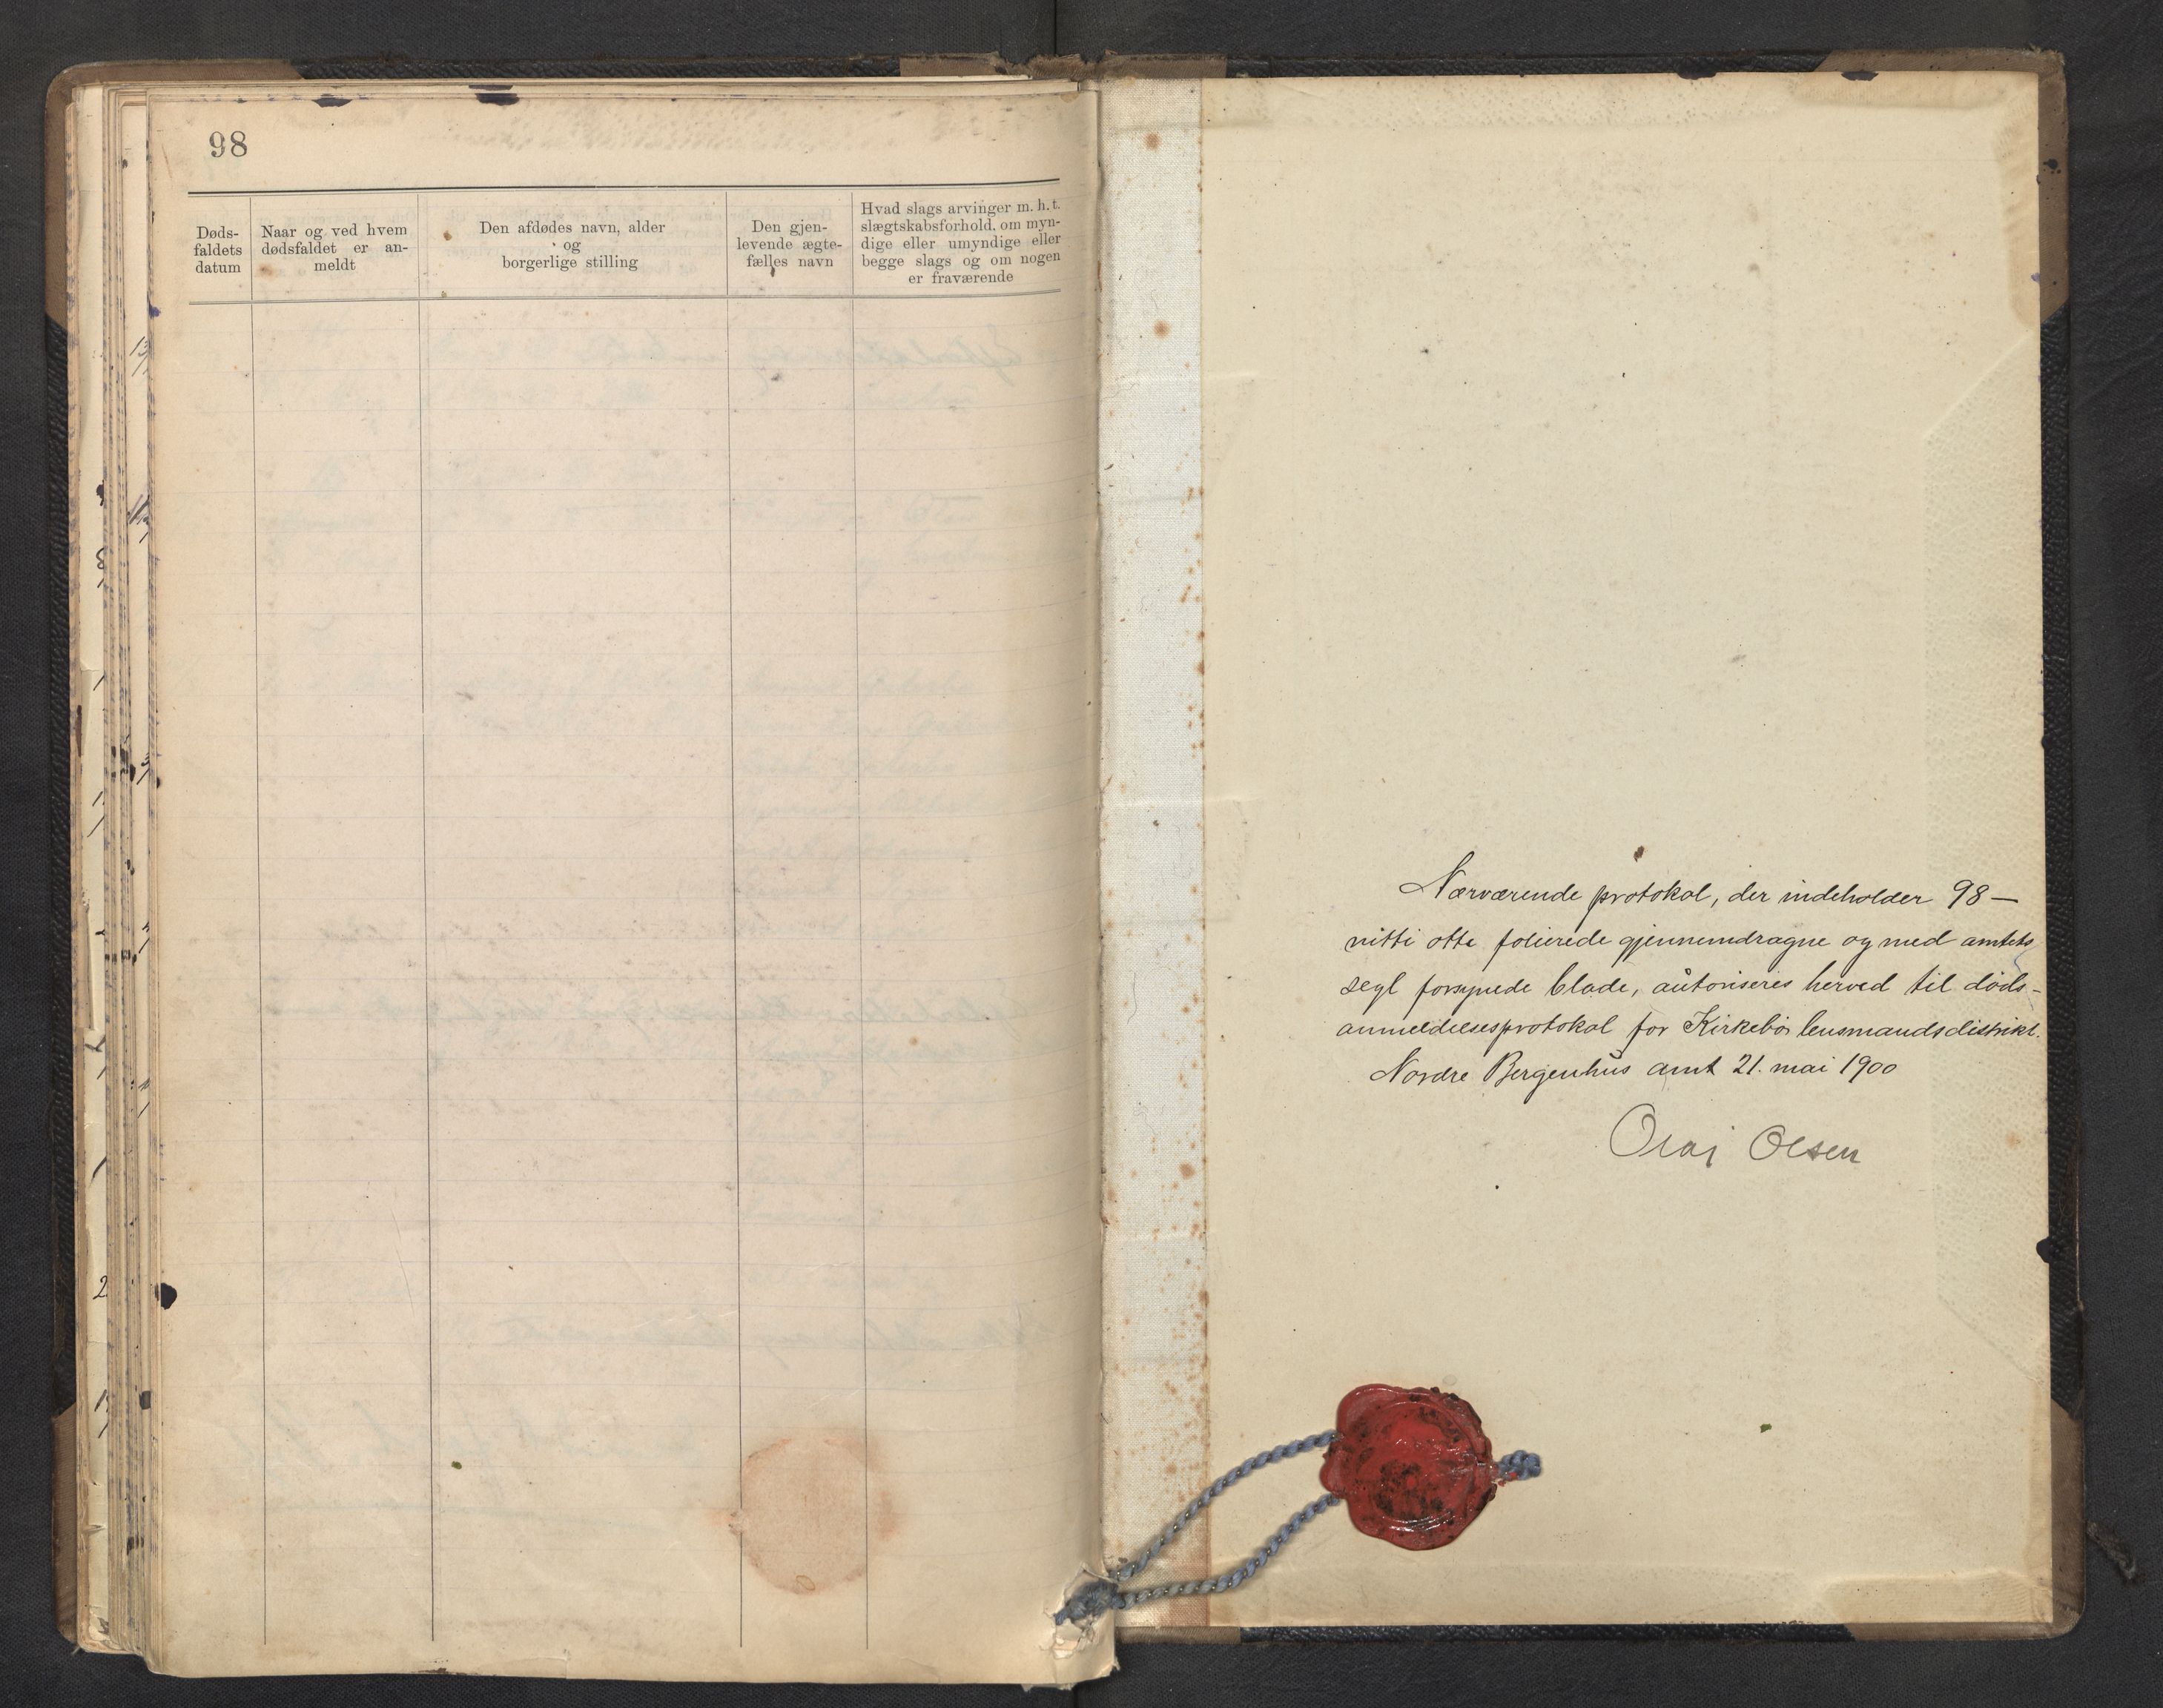 98
Døds-
faldets
datum
Naar og ved hvem
dødsfaldet er an-
meldt
Den afdødes navn, alder
og
borgerlige stilling
Den gjen-
levende ægte-
fælles navn
Hvad slags arvinger m. h. t.
slægtskabsforhold, om myn-
dige eller umyndige eller
begge slags og om nogen
er fraværende
Nærværende protokol, der indeholder 98 —
nitti otte folierede gjennemdragne og med amtets
segl forsynede blade, autoriseres herved til døds-
anmeldelsesprotokol for Kirkebø lensmandsdistrikt.
Nordre Bergenhus amt 21. mai 1900
Olsen